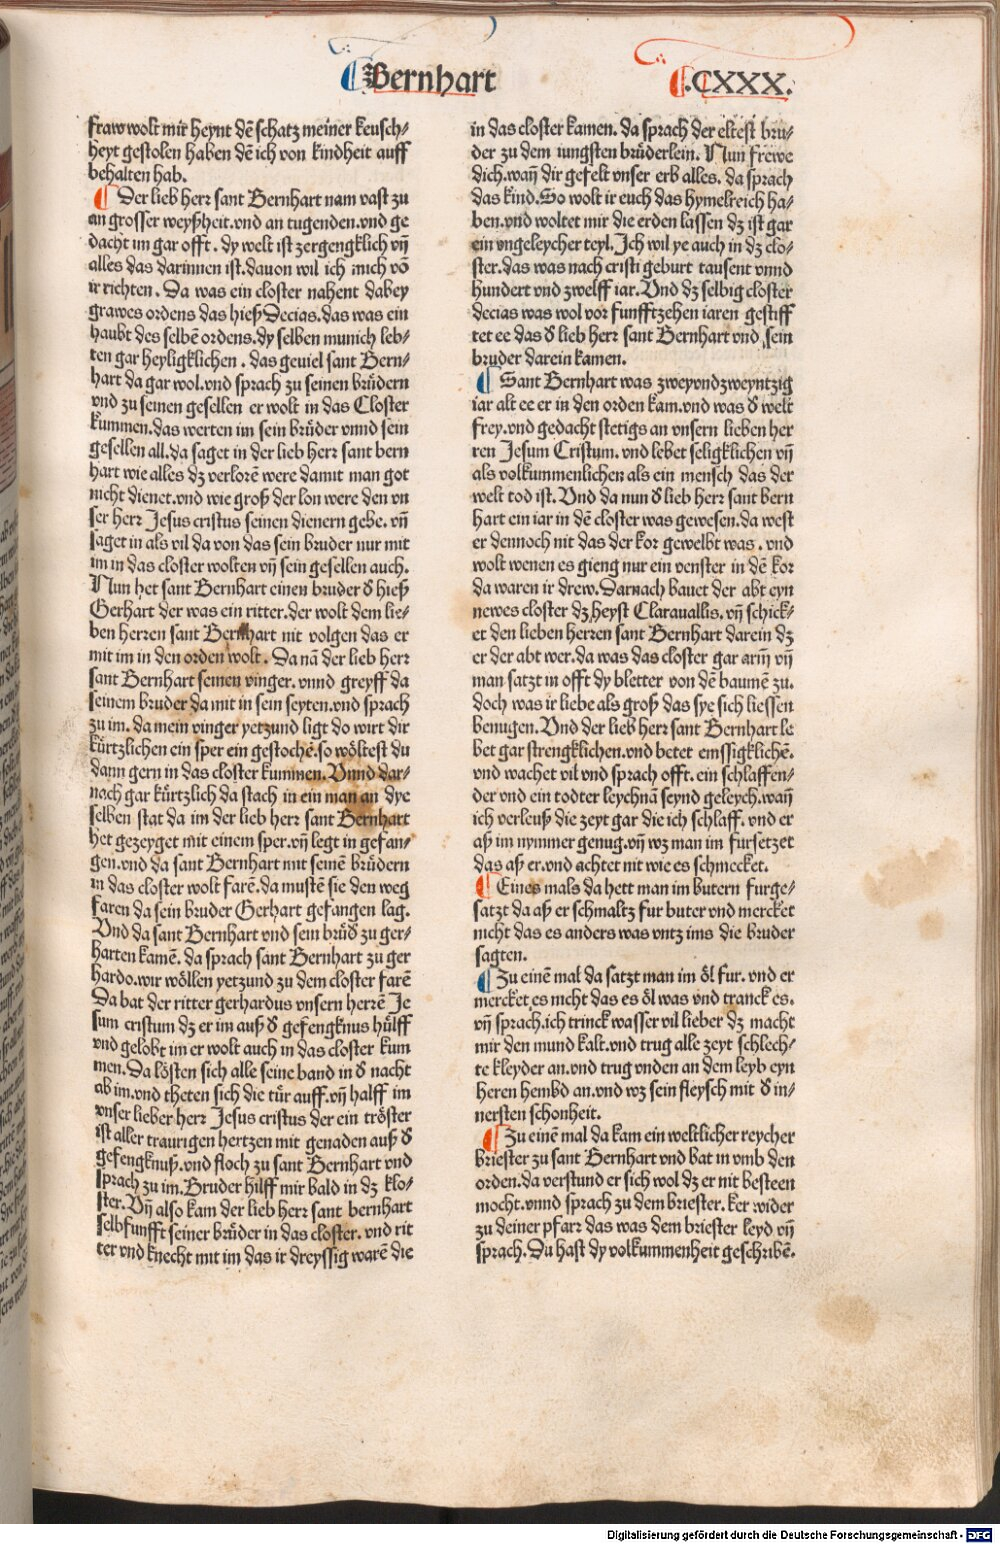 Bernhart
.CXXX.
fraw wolt mir heynt dē schatz meiner keusch⸗
heyt gestolen haben dē ich von kindheit auff
behalten hab.
¶ Der lieb herr sant Bernhart nam vast zu
an grosser weyßheit. vnd an tugenden. vnd ge
dacht im gar offt. dy welt ist zergengklich vn̄
alles das darinnen ist. dauon wil ich mich vō
ir richten. Da was ein closter nahent dabey
grawes ordens das hieß Decias. das was ein
haubt des selbē ordens. dy selben munich leb⸗
ten gar heyligklichen. das geuiel sant Bern⸗
hart da gar wol. vnd sprach zu seinen brüdern
vnd zu seinen gesellen er wolt in das Closter
kummen. das werten im sein brüder vnnd sein
gesellen all. da saget in der lieb herr sant bern
hart wie alles dz verlorē were damit man got
nicht dienet. vnd wie groß der lon were den vn
ser herr Jesus cristus seinen dienern gebe. vn̄
saget in als vil da von das sein bruder nur mit
im in das closter wolten vn̄ sein gesellen auch.
Nun het sant Bernhart einen bruder d hieß
Gerhart der was ein ritter. der wolt dem lie⸗
ben herren sant Bernhart nit volgen das er
mit im in den orden wolt. Da nā der lieb herr
sant Bernhart seinen vinger. vnnd greyff da
seinem bruder da mit in sein seyten. vnd sprach
zu im. da mein vinger yetzund ligt do wirt dir
kürtzlichen ein sper ein gestochē. so wöltest du
dann gern in das closter kummen. Vnnd dar⸗
nach gar kürtzlich da stach in ein man an dye
selben stat da im der lieb herr sant Bernhart
het gezeyget mit einem sper. vn̄ legt in gefan⸗
gen. vnd da sant Bernhart mit seinē brüdern
in das closter wolt farē. da mustē sie den weg
faren da sein bruder Gerhart gefangen lag.
Vnd da sant Bernhart vnd sein brüd zu ger⸗
harten kamē. da sprach sant Bernhart zu ger
hardo. wir wöllen yetzund zu dem closter farē
Da bat der ritter gerhardus vnsern herrē Je
sum cristum dz er im auß d gefengknus hülff
vnd gelobt im er wolt auch in das closter kum
men. Da lösten sich alle seine band in d nacht
ab im. vnd theten sich die tür auff. vn̄ halff im
vnser lieber herr Jesus cristus der ein tröster
ist aller traurigen hertzen mit genaden auß d
gefengknuß. vnd floch zu sant Bernhart vnd
sprach zu im. Bruder hilff mir bald in dz klo⸗
ster. Vn̄ also kam der lieb herr sant bernhart
selbfunfft seiner brüder in das closter. vnd rit
ter vnd knecht mit im das ir dreyssig warē die
in das closter kamen. da sprach der eltest bru⸗
der zu dem iungsten brüderlein. Nun frewe
dich. wan̄ dir gefelt vnser erb alles. da sprach
das kind. So wolt ir euch das hymelreich ha⸗
ben. vnd woltet mir die erden lassen dz ist gar
ein vngeleycher teyl. Ich wil ye auch in dz clo⸗
ster. das was nach cristi geburt tausent vnnd
hundert vnd zwelff iar. Vnd dz selbig closter
decias was wol vor funfftzehen iaren gestiff
tet ee das d lieb herr sant Bernhart vnd sein
bruder darein kamen.
¶ Sant Bernhart was zweyvndzweyntzig
iar alt ee er in den orden kam. vnd was d welt
frey. vnd gedacht stetigs an vnsern lieben her
ren Jesum Cristum. vnd lebet seligklichen vn̄
als volkummenlichen als ein mensch das der
welt tod ist. Vnd da nun d lieb herr sant bern
hart ein iar in dē closter was gewesen. da west
er dennoch nit das der kor gewelbt was. vnd
wolt wenen es gieng nur ein venster in dē kor
da waren ir drew. Darnach bauet der abt eyn
newes closter dz heyst Clarauallis. vn̄ schick⸗
et den lieben herren sant Bernhart darein dz
er der abt wer. da was das closter gar arm vn̄
man satzt in offt dy bletter von dē baumē zu.
doch was ir liebe als groß das sye sich liessen
benugen. Vnd der lieb herr sant Bernhart le
bet gar strengklichen. vnd betet emssigklichē.
vnd wachet vil vnd sprach offt. ein schlaffen⸗
der vnd ein todter leychnā seynd geleych. wan̄
ich verleuß die zeyt gar die ich schlaff. vnd er
aß im nymmer genug. vn̄ wz man im fürsetzet
das aß er. vnd achtet nit wie es schmecket.
¶ Eines mals da hett man im butern furge⸗
satzt da aß er schmaltz fur buter vnd mercket
nicht das es anders was vntz ims die bruder
sagten.
¶ Zu einē mal da satzt man im öl fur. vnd er
mercket es nicht das es öl was vnd tranck es.
vn̄ sprach. ich trinck wasser vil lieber dz macht
mir den mund kalt. vnd trug alle zeyt schlech⸗
te kleyder an. vnd trug vnden an dem leyb eyn
heren hembd an. vnd wz sein fleysch mit d in⸗
nersten schonheit.
¶ Zu einē mal da kam ein weltlicher reycher
briester zu sant Bernhart vnd bat in vmb den
orden. da verstund er sich wol dz er nit besteen
mocht. vnnd sprach zu dem briester. ker wider
zu deiner pfarr das was dem briester leyd vn̄
sprach. Du hast dy volkummenheit geschribē.
Digitalisierung gefördert durch die Deutsche Forschungsgemeinschaft - DFG